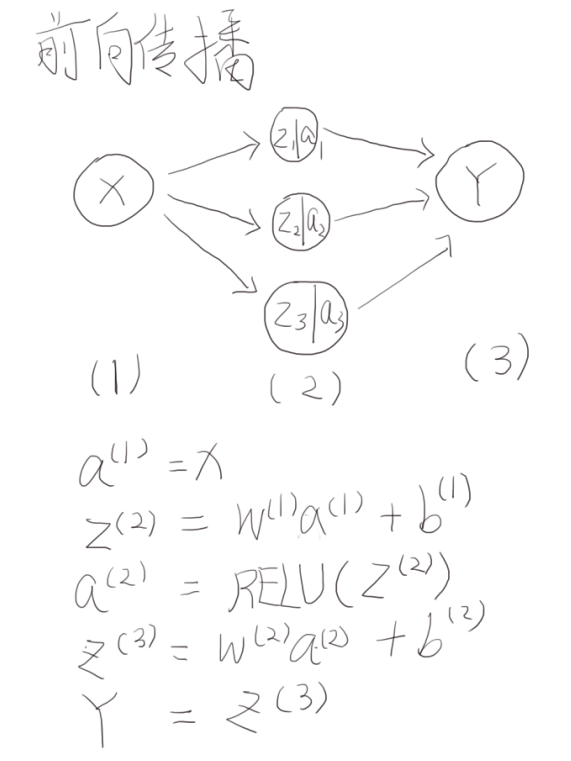 前向传播
z₁|a₁
X
Y
z₂|a₂
z₃|a₃
(1) (2) (3)
a⁽¹⁾ = X
z⁽²⁾ = W⁽¹⁾a⁽¹⁾ + b⁽¹⁾
a⁽²⁾ = RELU(z⁽²⁾)
z⁽³⁾ = W⁽²⁾a⁽²⁾ + b⁽²⁾
Y = z⁽³⁾